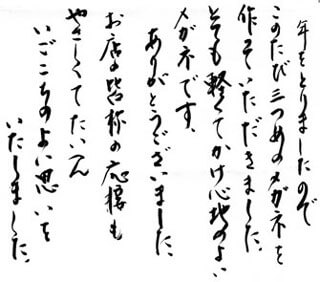 年をとりましたので
このたび三つめのメガネを
作っていただきました。
とても軽くてかけ心地のよい
メガネです。
ありがとうございました。
お店の皆様の応接も
やさしくてたいへん
いごこちのよい思いを
いたしました。